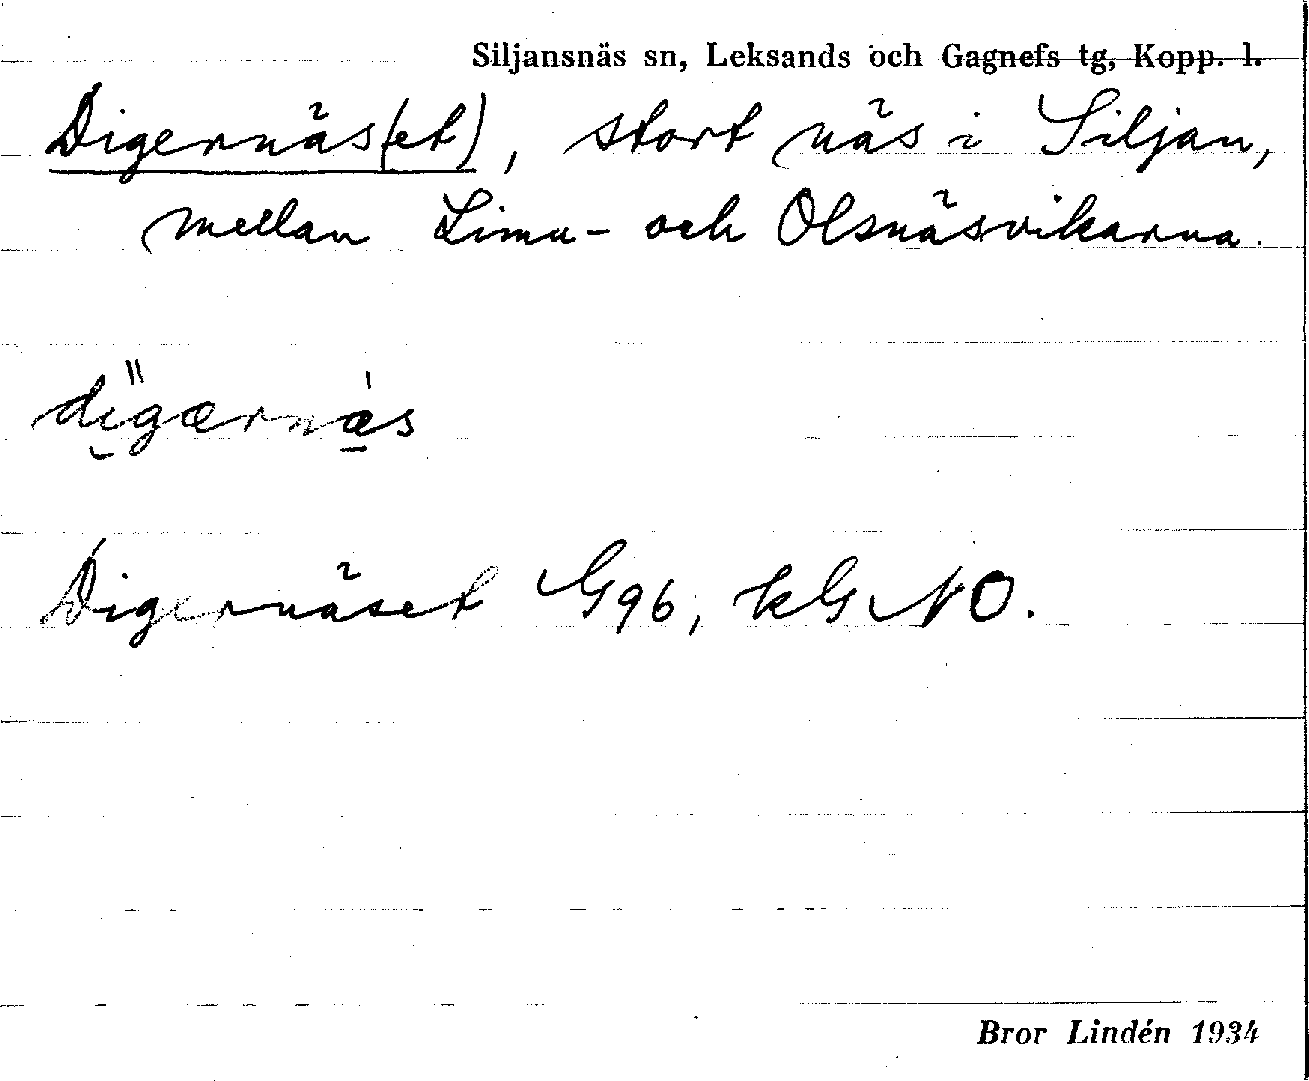 Siljansnäs sn, Leksands och Gagnefs tg, Kopp. l.
Digernäs(et), stort näs i Siljan,
mellan Limu- och Olsnäsvikarna.
digærnäs
Digernäset G96, kG NO.
Bror Lindén 1934